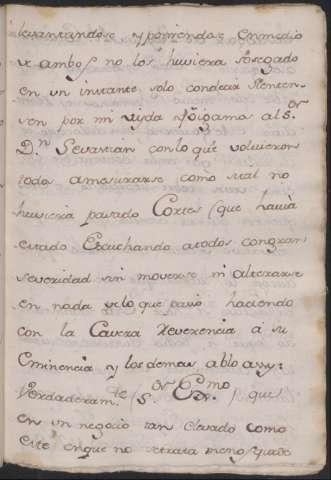 levantandose y poniendose enmedio
de ambos no los huviera sosegado
en un instante solo con decir
ven por mi vida y oigamos al S.or
D.n Sevastian con lo que volvieron
todos a mesurarse como si tal no
huviera pasado Cortes (que havia
estado Escuchando a todos con gran
severidad sin moverse ni alterarse
en nada de lo que pasó haciendo
con la Caveza Reverencia á su
Eminencia y los demas, abló assi:
Verdaderam.te S.or Emo
en un negocio tan elevado como
este en que no se trata menos que de